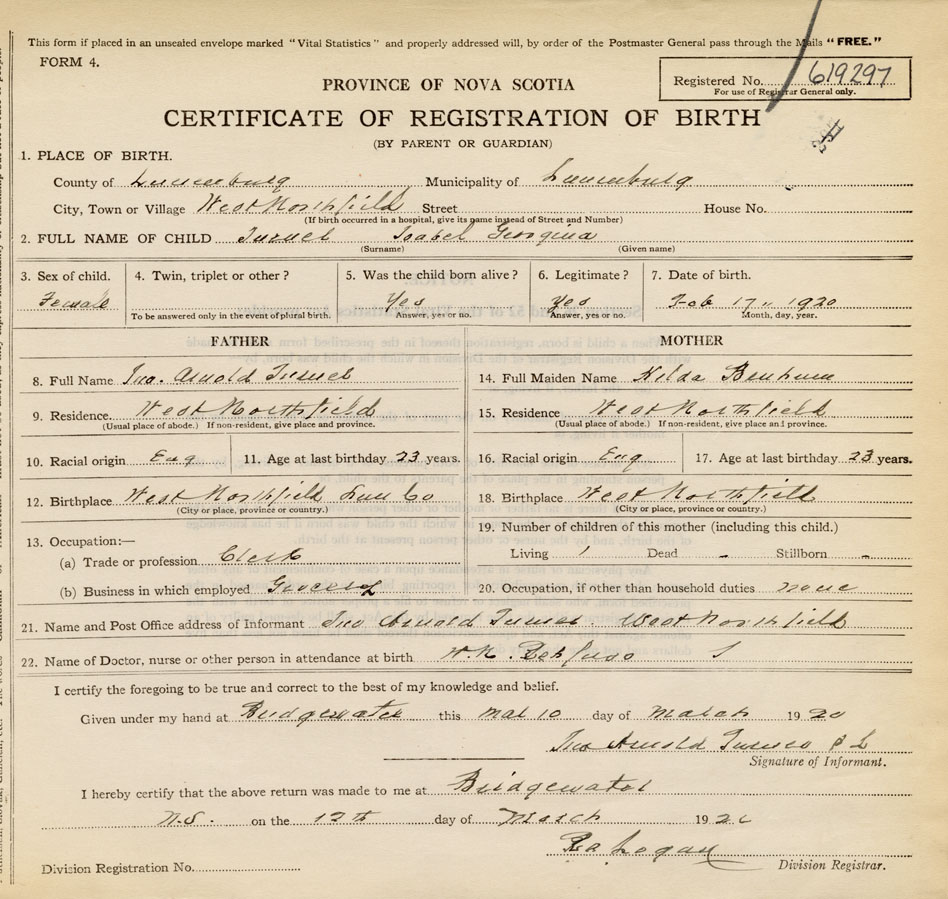 This form if placed in an unsealed envelope marked "Vital Statistics" and properly addressed will, by order of the Postmaster General pass through the Mails "FREE."
FORM 4.
Registered No. 619297
For use of Registrar General only.
PROVINCE OF NOVA SCOTIA
CERTIFICATE OF REGISTRATION OF BIRTH
(BY PARENT OR GUARDIAN)
1. PLACE OF BIRTH.
County of Lunenburg Municipality of Lunenburg
City, Town or Village West Northfield Street House No.
(If birth occurred in a hospital, give its name instead of Street and Number)
2. FULL NAME OF CHILD Turner Isabel Georgina
(Surname) (Given name)
3. Sex of child. 4. Twin, triplet or other? 5. Was the child born alive? 6. Legitimate? 7. Date of birth.
Female Yes Yes Feb 17 1920
To be answered only in the event of plural birth. Answer, yes or no. Answer, yes or no. Month, day, year.
FATHER MOTHER
8. Full Name Jno. Arnold Turner 14. Full Maiden Name Hilda
9. Residence. West Northfield 15. Residence West Northfield
(Usual place of abode.) If non-resident, give place and province. (Usual place of abode.) If non-resident, give place and province.
10. Racial origin Eng 11. Age at last birthday 23 years. 16. Racial origin Eng 17. Age at last birthday 23 years.
12. Birthplace West Northfield Lun Co 18. Birthplace West Northfield
(City or place, province or country.) (City or place, province or country.)
13. Occupation:— 19. Number of children of this mother (including this child.)
(a) Trade or profession Clerk Living 1 Dead - Stillborn -
(b) Business in which employed Grocery 20. Occupation, if other than household duties none
21. Name and Post Office address of Informant Jno Arnold Turner West Northfield
22. Name of Doctor, nurse or other person in attendance at birth
I certify the foregoing to be true and correct to the best of my knowledge and belief.
Given under my hand at Bridgewater this Mar 10 day of March 1920
Jno Arnold Turner
Signature of Informant.
I hereby certify that the above return was made to me at Bridgewater
N.S. on the 12th day of March 192
Logan
Division Registration No. Division Registrar.